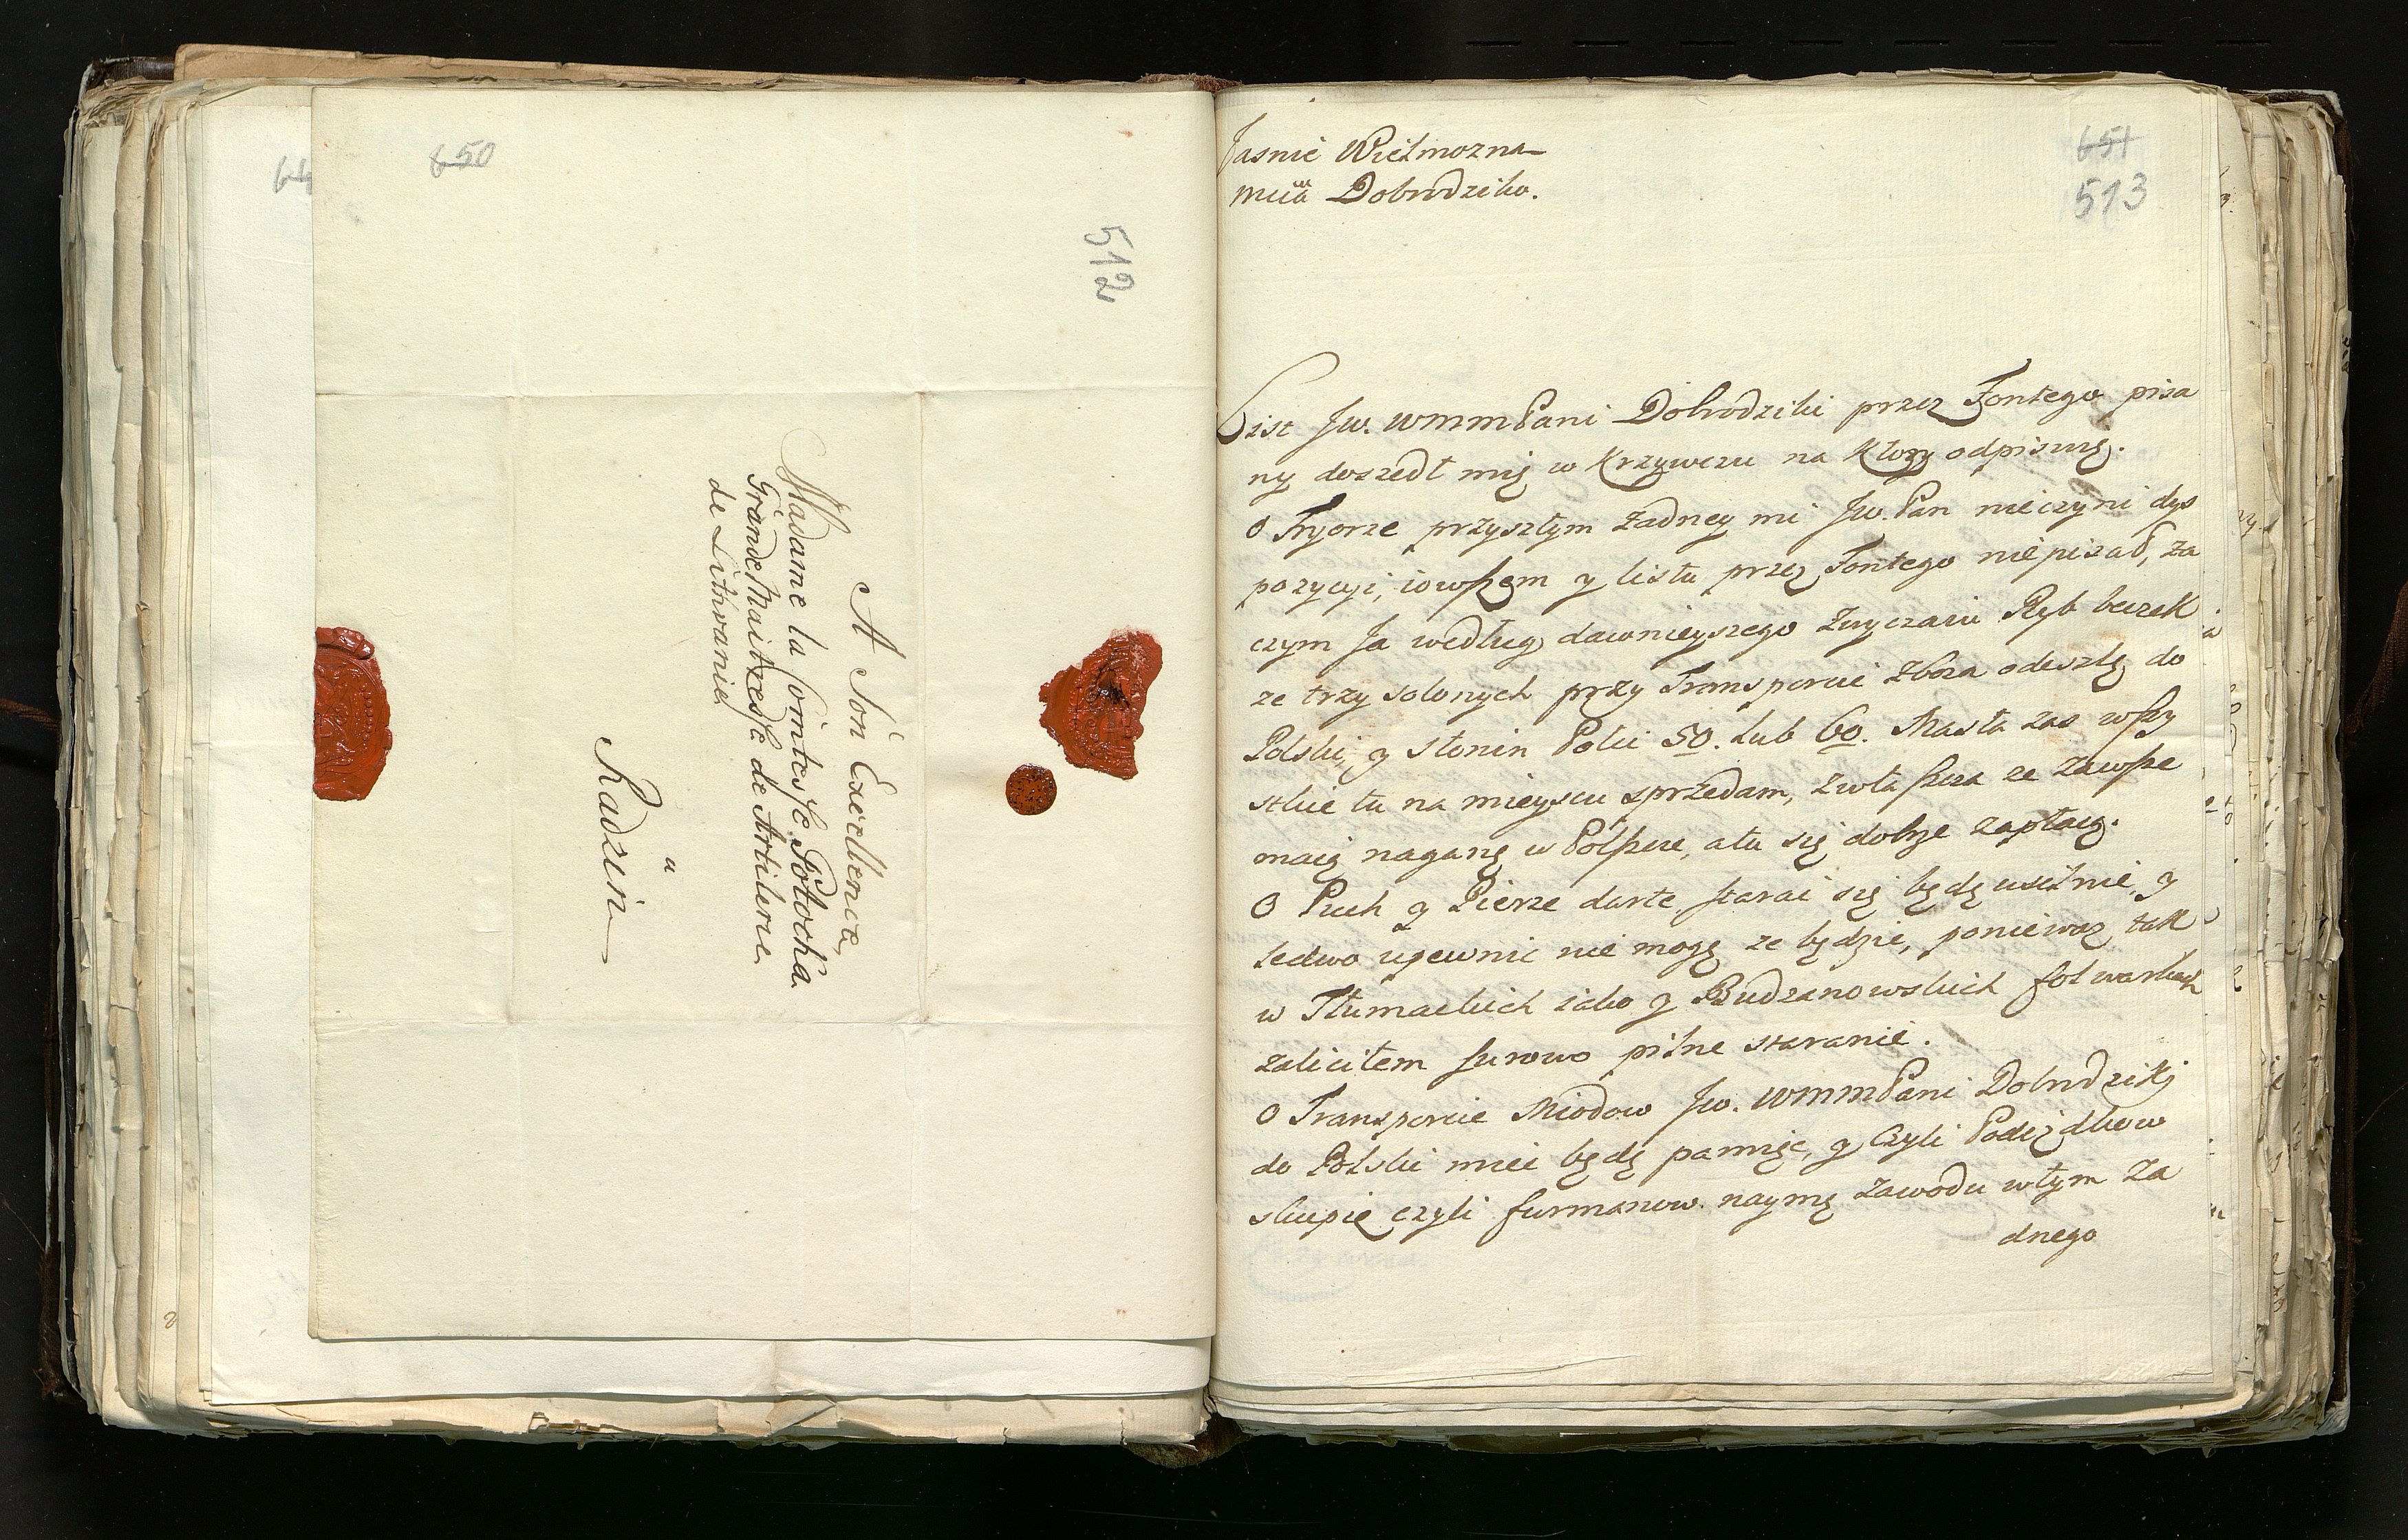 650
512
A Son Excellence,
Madame la Comtesse Potocka
Grande Maitresse de Artilerie
de Lithvanie
a
Radzin
651
513
Jasnie Wielmozna
Mcia Dobrodziko.
List Jw. WMMPani Dobrodziki przez Fontego pisa
ny doszedł mię w Krzywczu na Ktory odpisuię.
O Fryorze przyszłym Zadney mi Jw. Pan nieczyni dys
pozycyi, iowszem y listu przez Fontego niepisał, za
czym Ja według dawnieyszego Zwyczaiu Ryb beczek
ze trzy solonych przy Transporcie Zboza odeszlę do
Polski, y Słonin Połci 50. lub 60. Masła zas wszy
stkie tu na mieyscu sprzedam, zwłaszcza ze Zawsze
maią naganę w Polszcze, atu się dobrze zapłacą.
O Puch y Pierze darte starac się będę usilnie, y
ledwo upewnic nie mogę ze będzie, poniewaz tak
w Tłumackich iako y Budzanowskich folwarkach
zalicilem surowo pilne staranie.
O Transporcie Miodow Jw. WMMPani Dobrodziki
do Polski miec będę pamięc, y Czyli Podiezdkow
skupię czyli furmanow naymę Zawodu wtym Za
dnego